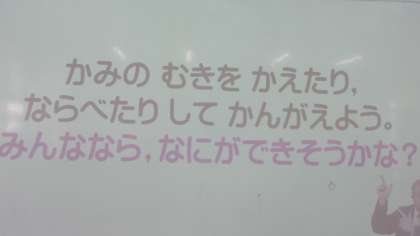 かみの むきを かえたり,
ならべたり して かんがえよう。
みんななら, なにができそうかな?